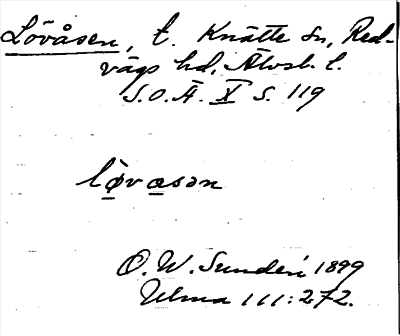 Lövåsen, t. Knätte sn, Red-
vägs hd, Älvsb. l.
S.O.Ä. X S. 119
lòvasən
O. W. Sundén 1899
Ulma 111:272.